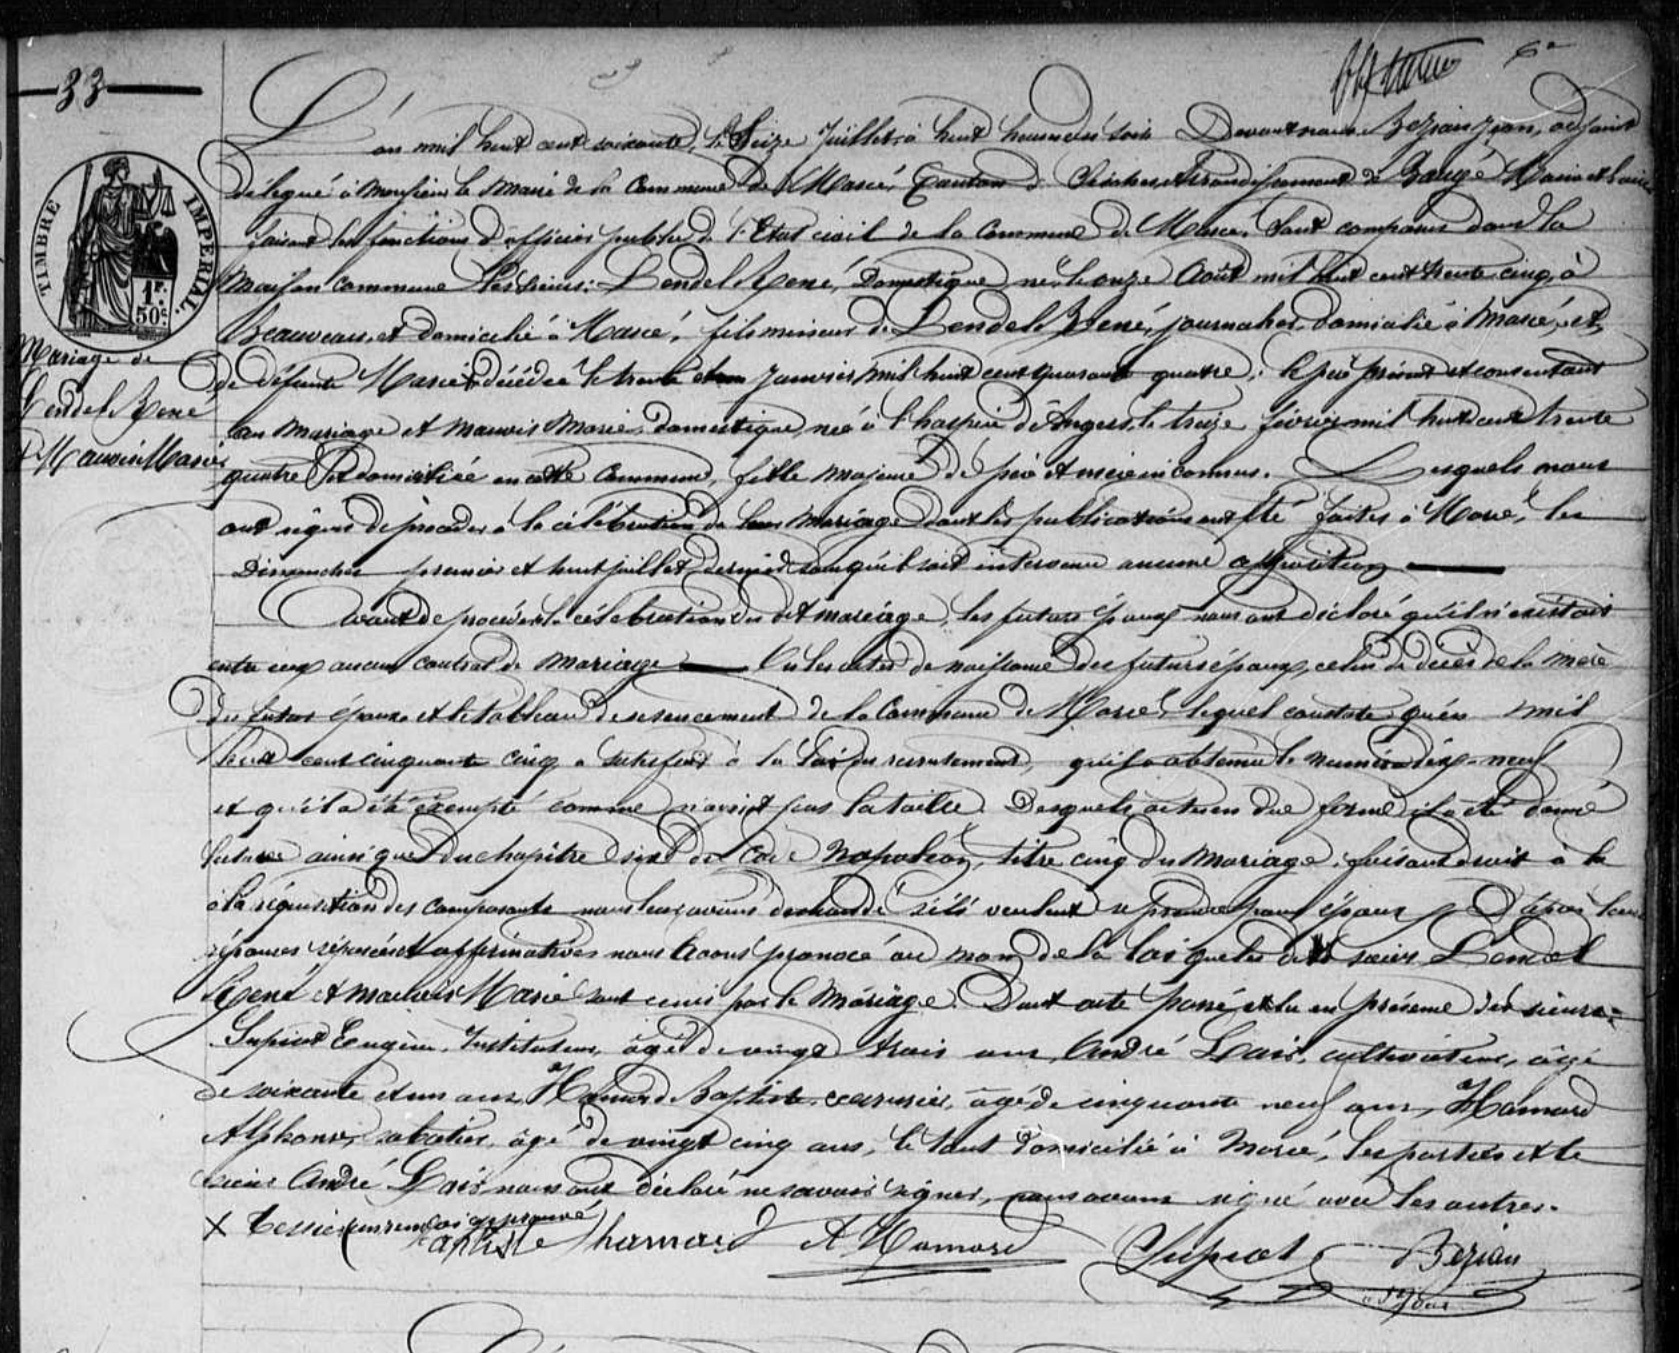 33
TIMBRE IMPERIAL.
1F.
50c.
Mariage de
Lendel René
& Mauvis Marie
L'an mil huit cent soixante, le Seize Juillet, à huit heures du soir Devant nous Bezian Jean, adjoint
délégué à Monsieur le Maire de la Commune de Marcé, Canton de Seiches, Arrondissement de Baugé Maine et Loire
faisant les fonctions d'officier public de l'Etat civil de la Commune de Marcé. Sont comparus dans la
Maison Commune Les sieurs: Lendel René, Domestique né le onze Août mil huit cent trente cinq, à
Beauveau, et domicilié à Marcé, fils mineur de Lendel René, journalier, domicilié à Marcé, et
de défunte Marie X décédée le trente et un Janvier mil huit cent quarante quatre; le père présent et consentant
au Mariage et Mauvis Marie, domestique, née à l'hospice d'Angers, le treize février mil huit cent trente
quatre et domiciliée en cette Commune, fille majeure de père et mère inconnus. Lesquels nous
ont requis de procéder à la célébration de leur Mariage dont les publications ont été faites à Marcé, les
Dimanches premier et huit juillet dernier sans qu'il soit intervenu aucune opposition
Avant de procéder à la célébration du dit mariage, les futurs époux nous ont déclaré qu'il n'existait
entre eux aucun contrat de Mariage Vu les actes de naissance des futurs époux, celui de décès de la mère
du futur époux et le tableau de recencement de la Commune de Marcé, lequel constate qu'en mil
huit cent cinquante cinq a satisfait à la loi du recrutement, qu'il a obtenu le numéro dix-neuf
et qu'il a été exempté comme n'avoir pas la taille. Desquels actes en due forme il a été donné
lecture ainsi que du chapitre six du Code Napoléon, titre cinq du Mariage, faisant droit à la
à la réquisition des comparants nous leur avons demandé s'ils veulent se prendre pour époux D'après leurs
réponses affirmatives nous avons prononcé au nom de la loi que les dits sieurs Lendel
René et Mauvis Marie sont unis par le Mariage. Dont acte passé et lu en présence des sieurs:
Supiot Eugène, Instituteur, âgé de vingt trois ans, André Louis, cultivateur, âgé
de soixante et un ans, Hamard Baptiste, âgé de cinquante neuf ans, Hamard
Alphonse, sabotier, âgé de vingt cinq ans, le tout domicilié à Marcé, les parties et le
sieur André Louis nous ont déclaré ne savoir signer, nous avons signé avec les autres.
X Tessier (un renvoi approuvé)
Baptiste hamard A Hamard Supiot Bezian
adjoint